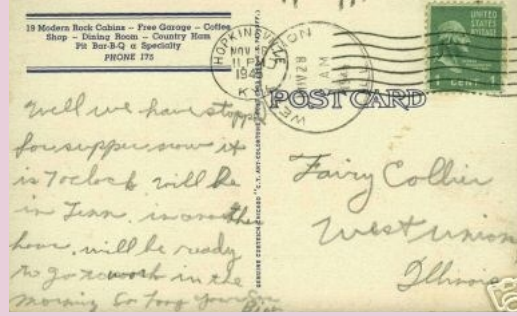 19 Modern Rock Cabins – Free Garage – Coffee
Shop – Dining Room – Country Ham
Pit Bar-B-Q a Specialty
PHONE 175
HOPKINSVILLE
NOV
11 PM
194
KY
WEST UNION
NOV 28
AM
UNITED
STATES
POSTAGE
1 CENT 1
POST CARD
GENUINE CURTEICH-CHICAGO "C.T. ART-COLORTONE" POST CARD
Well we have stopped
for supper now it
is 7 oclock will be
in Tenn. in another
hour, will be ready
to go to work in the
morning So long your Son
Fairy Collier
West Union
Illinois